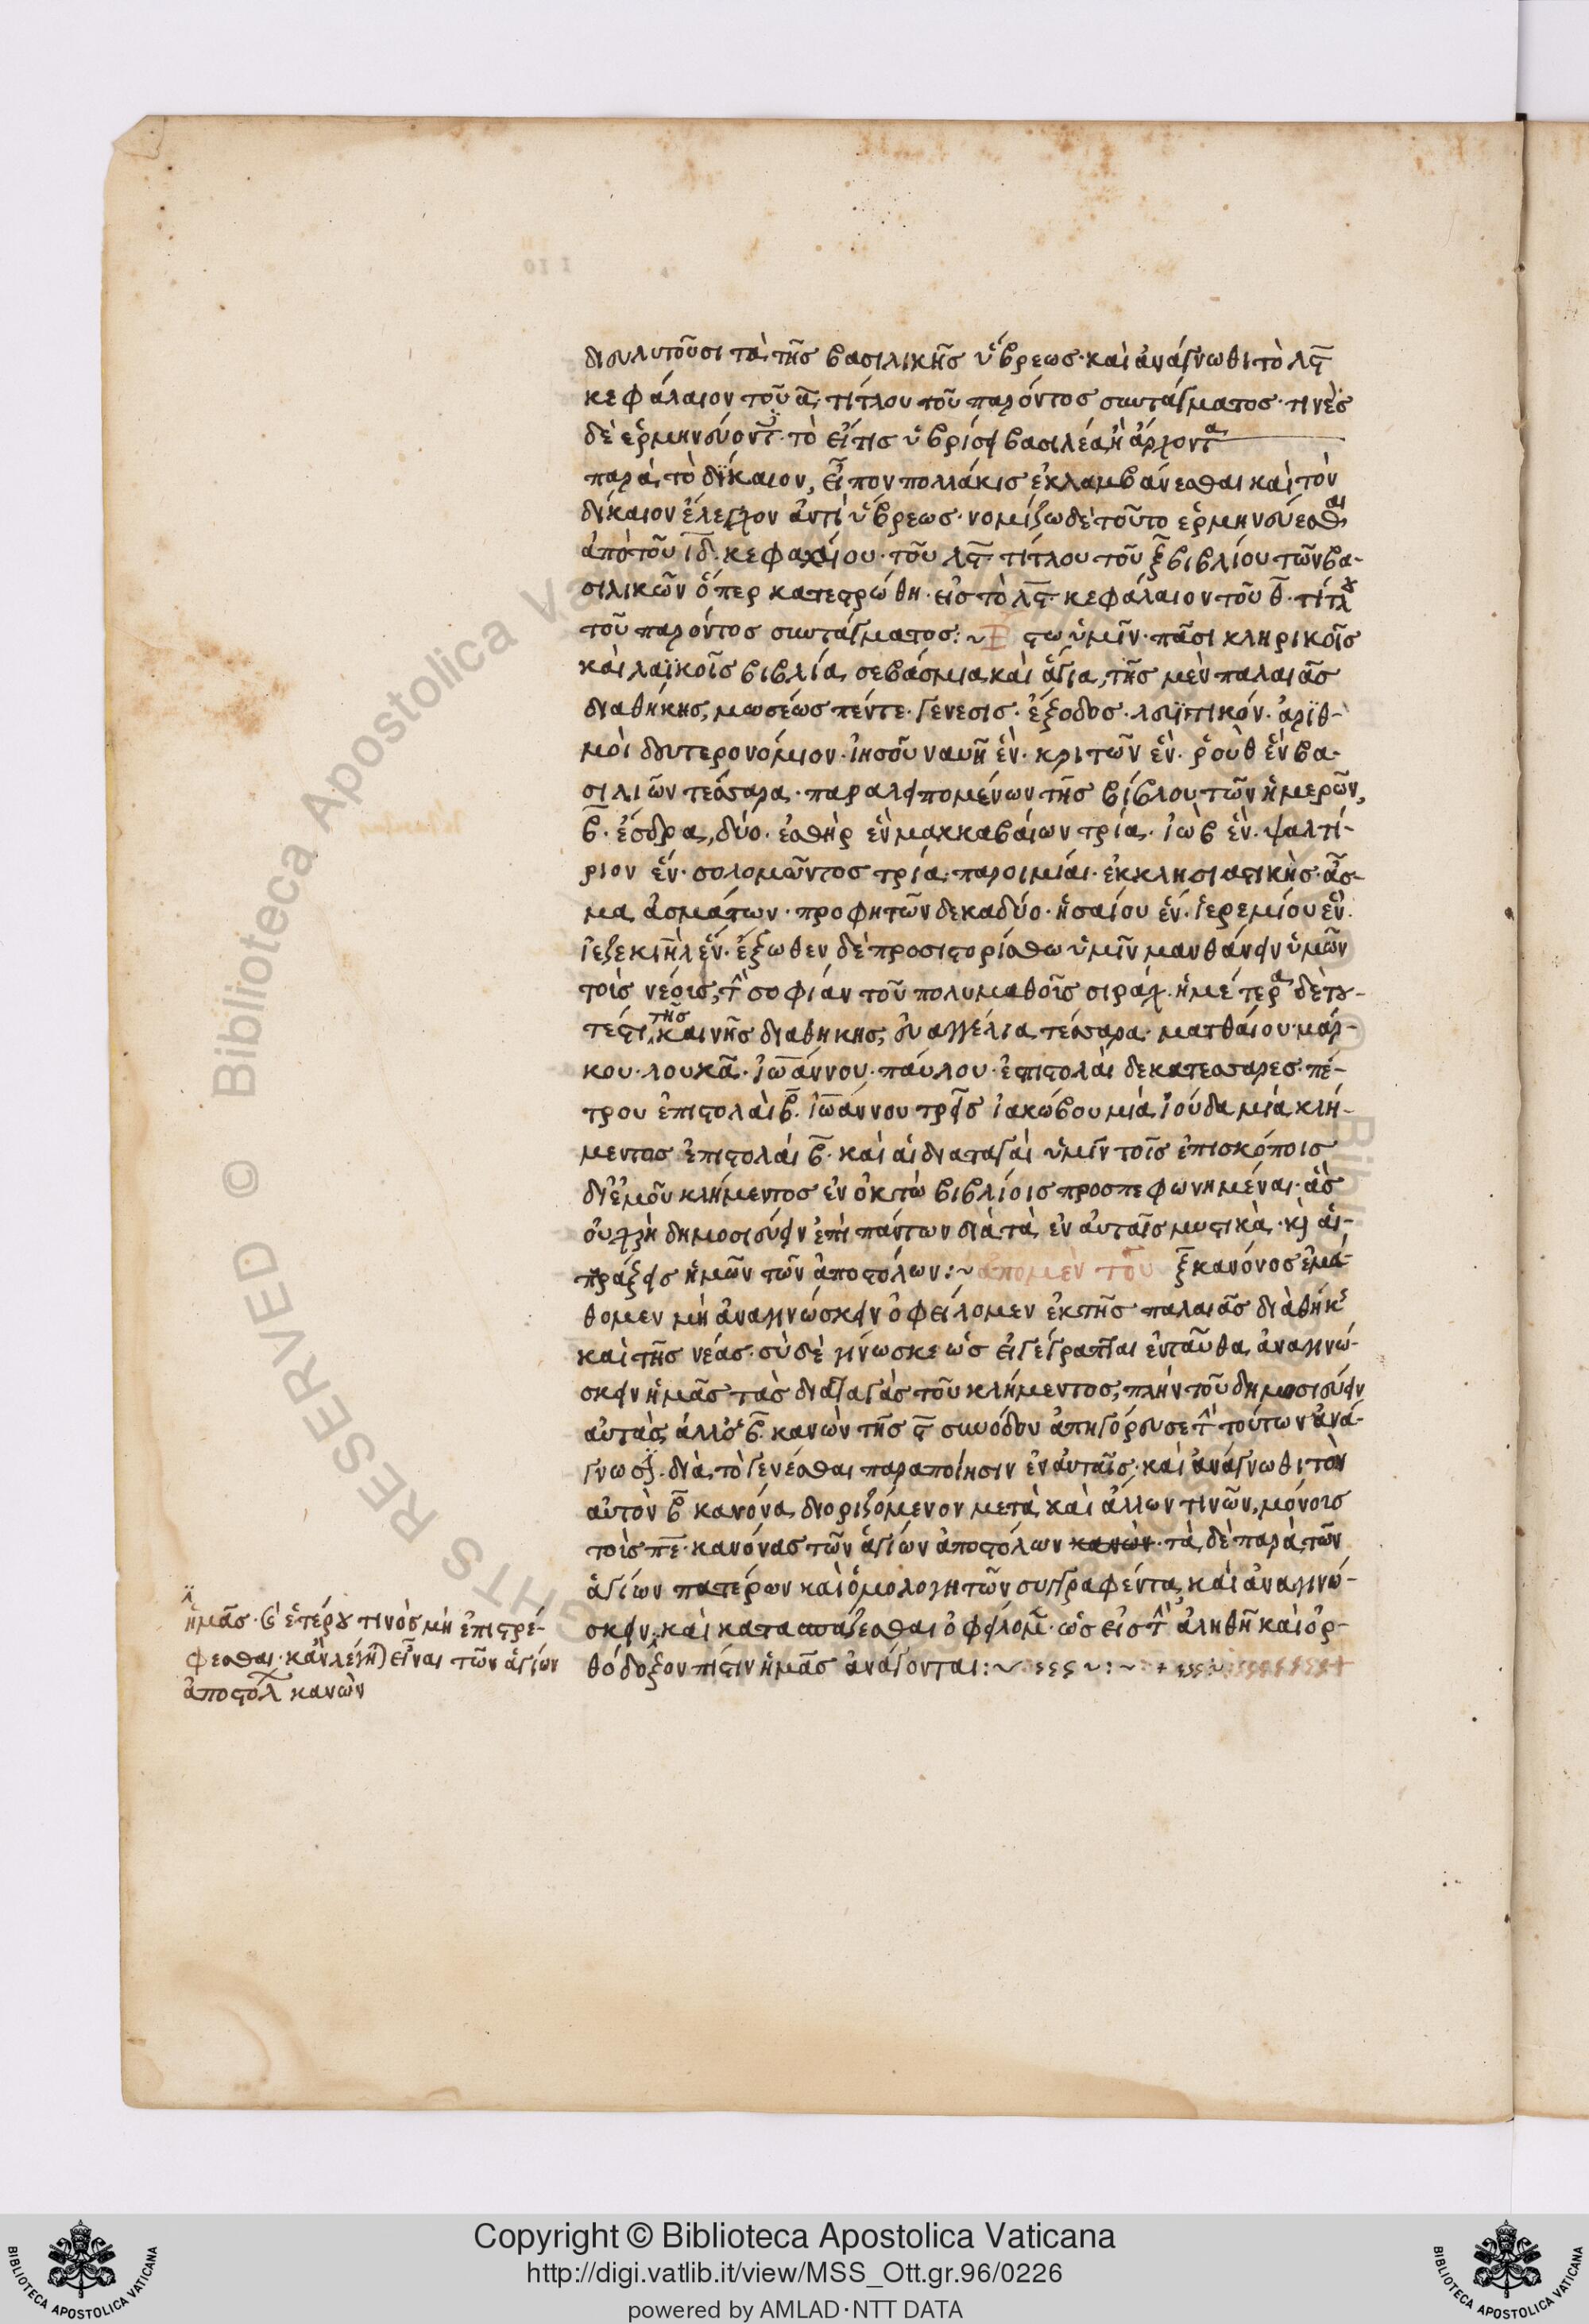 διευλυτοῦσι τὰ τῆς βασιλικῆς ὕβρεως· καὶ ἀνάγνωθι τὸ λϛ
κεφάλαιον τοῦ α τίτλου τοῦ παρόντος συντάγματος· τινὲς
δὲ ἑρμηνεύοντ τὸ εἴ τις ὑβρίσει βασιλέα ἢ ἄρχοντα
παρὰ τὸ δίκαιον, εἶπον πολλάκις ἐκλαμβάνεσθαι καὶ τὸν
δίκαιον ἔλεγχον ἀντὶ ὕβρεως· νομίζω δὲ τοῦτο ἑρμηνεύεσθαι
ἀπὸ τοῦ ιδ κεφαλαίου· τοῦ λϛ τίτλου τοῦ ξ βιβλίου τῶν βα-
σιλικῶν ὅπερ κατεστρώθη· εἰς τὸ λϛ κεφάλαιον τοῦ θ τίτλου
τοῦ παρόντος συντάγματος:~ Ἔστω ὑμῖν· πᾶσι κληρικοῖς
καὶ λαϊκοῖς βιβλία σεβάσμια καὶ ἅγια, τῆς μὲν παλαιᾶς
διαθήκης, μωσέως πέντε· γένεσις· ἔξοδος· λευϊτικόν· ἀριθ-
μοὶ δευτερονόμιον· ἰησοῦ ναυῆ ἓν· κριτῶν ἓν· ῥοὺθ ἓν βα-
σιλιῶν τέσσαρα· παραλειπομένων τῆς βίβλου τῶν ἡμερῶν,
β· ἔσδρα, δύο· ἐσθὴρ ἓν μακκαβαίων τρία· ἰὼβ ἓν· ψαλτί-
ριον ἕν· σολομῶντος τρία· παροιμίαι· ἐκκλησιαστικὴς· ἆσ-
μα ἀσμάτων· προφητῶν δεκαδύο· ἡσαίου ἕν· ἱερεμίου ἕν·
ἰεζεκιὴλ ἕν· ἔξωθεν δὲ προσιστορίσθω ὑμῖν μανθάνειν ὑμῶν
τοὶς νέοις, τὴν σοφίαν τοῦ πολυμαθοῖς σιράχ· ἡμέτερα δὲ του-
τέστι τῆς καινῆς διαθηκης, εὐαγγέλια τέσσαρα· ματθαίου· μάρ-
κου· λουκᾶ· ἰωάννου· παύλου· ἐπιστολὰι δεκατεσσαρες· πέ-
τρου ἐπιστολὰι β· ἰωάννου τρεῖς ἰακώβου μία ἰούδα μία κλή-
μεντος ἐπιστολάι β· καὶ αἱ διαταγαὶ ὑμῖν τοῖς ἐπισκόποις
δι' ἐμοῦ κλήμεντος ἐν ὀκτὼ βιβλίοις προσπεφωνημέναι· ἃς
οὐ χρὴ δημοσιεύειν ἐπὶ πάντων διὰ τὰ ἐν αὐταῖς μυστικὰ· κὶ αἱ-
πράξεις ἡμῶν τῶν ἀποστόλων:~ ἀπομὲν τοῦ ξ κανόνος ἐμά-
θομεν μὴ ἀναγινώσκειν ὀφείλομεν ἐκ τῆς παλαιᾶς διὰθήκης
καὶ τῆς νέας· σὺ δὲ γίνωσκε ὡς εἰ γέγραπται ἐνταῦθα ἀναγινώ-
σκειν ἡμᾶς τὰς διαταγὰς τοῦ κλήμεντος, πλὴν τοῦ δημοσιεύειν
αὐτὰς, ἀλλ' ὁ β κανὼν τῆς ϛ συνόδου ἀπηγόρευσε τὴν τούτων ἀνά-
γνωσιν· διὰ τὸ γενέσθαι παραποίησιν ἐν αὐταῖς· καὶ ἀνάγνωθι τὸν
αὐτὸν β κανόνα διοριζόμενον μετὰ καὶ ἄλλων τινῶν, μόνοις
τοὶς πε κανόνας τῶν ἁγίων ἀποστόλων κανὼν· τὰ δὲ παρὰ τῶν
ἁγίων πατέρων καὶ ὁμολογητῶν συγγραφέντα, καὶ ἀναγινώ-
σκειν, καὶ κατασπάζεσθαι ὀφείλομεν· ὡς εἰς τὴν ἀληθῆ καὶ ὀρ-
θόδοξον πίστιν ἡμᾶς ἀνάγονται:~
ἡμᾶς· ἑτέρου τινὸς μὴ ἐπιστρέ-
φεσθαι· κἂν λέγηται εἶναι τῶν ἁγίων
ἀποστόλ κανὼν
Copyright © Biblioteca Apostolica Vaticana
http://digi.vatlib.it/view/MSS_Ott.gr.96/0226
powered by AMLAD·NTT DATA
BIBLIOTECA APOSTOLICA VATICANA
BIBLIOTECA APOSTOLICA VATICANA